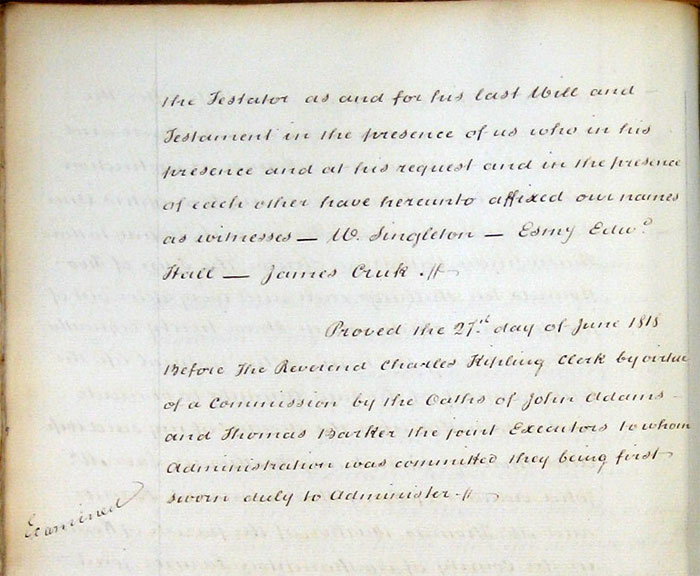 the Testator as and for his last Will and
Testament in the presence of us who in his
presence and at his request and in the presence
of each other have hereunto affixed our names
as witnesses — W. Singleton — Esmy Edwd.
Hall — James Cruk .//
Proved the 27.st day of June 1818
Before The Reverend Charles Kipling Clerk by virtue
of a Commission by the Oaths of John Adams
and Thomas Barker the joint Executors to whom
Administration was committed they being first
sworn duly to Administer .//
Examined